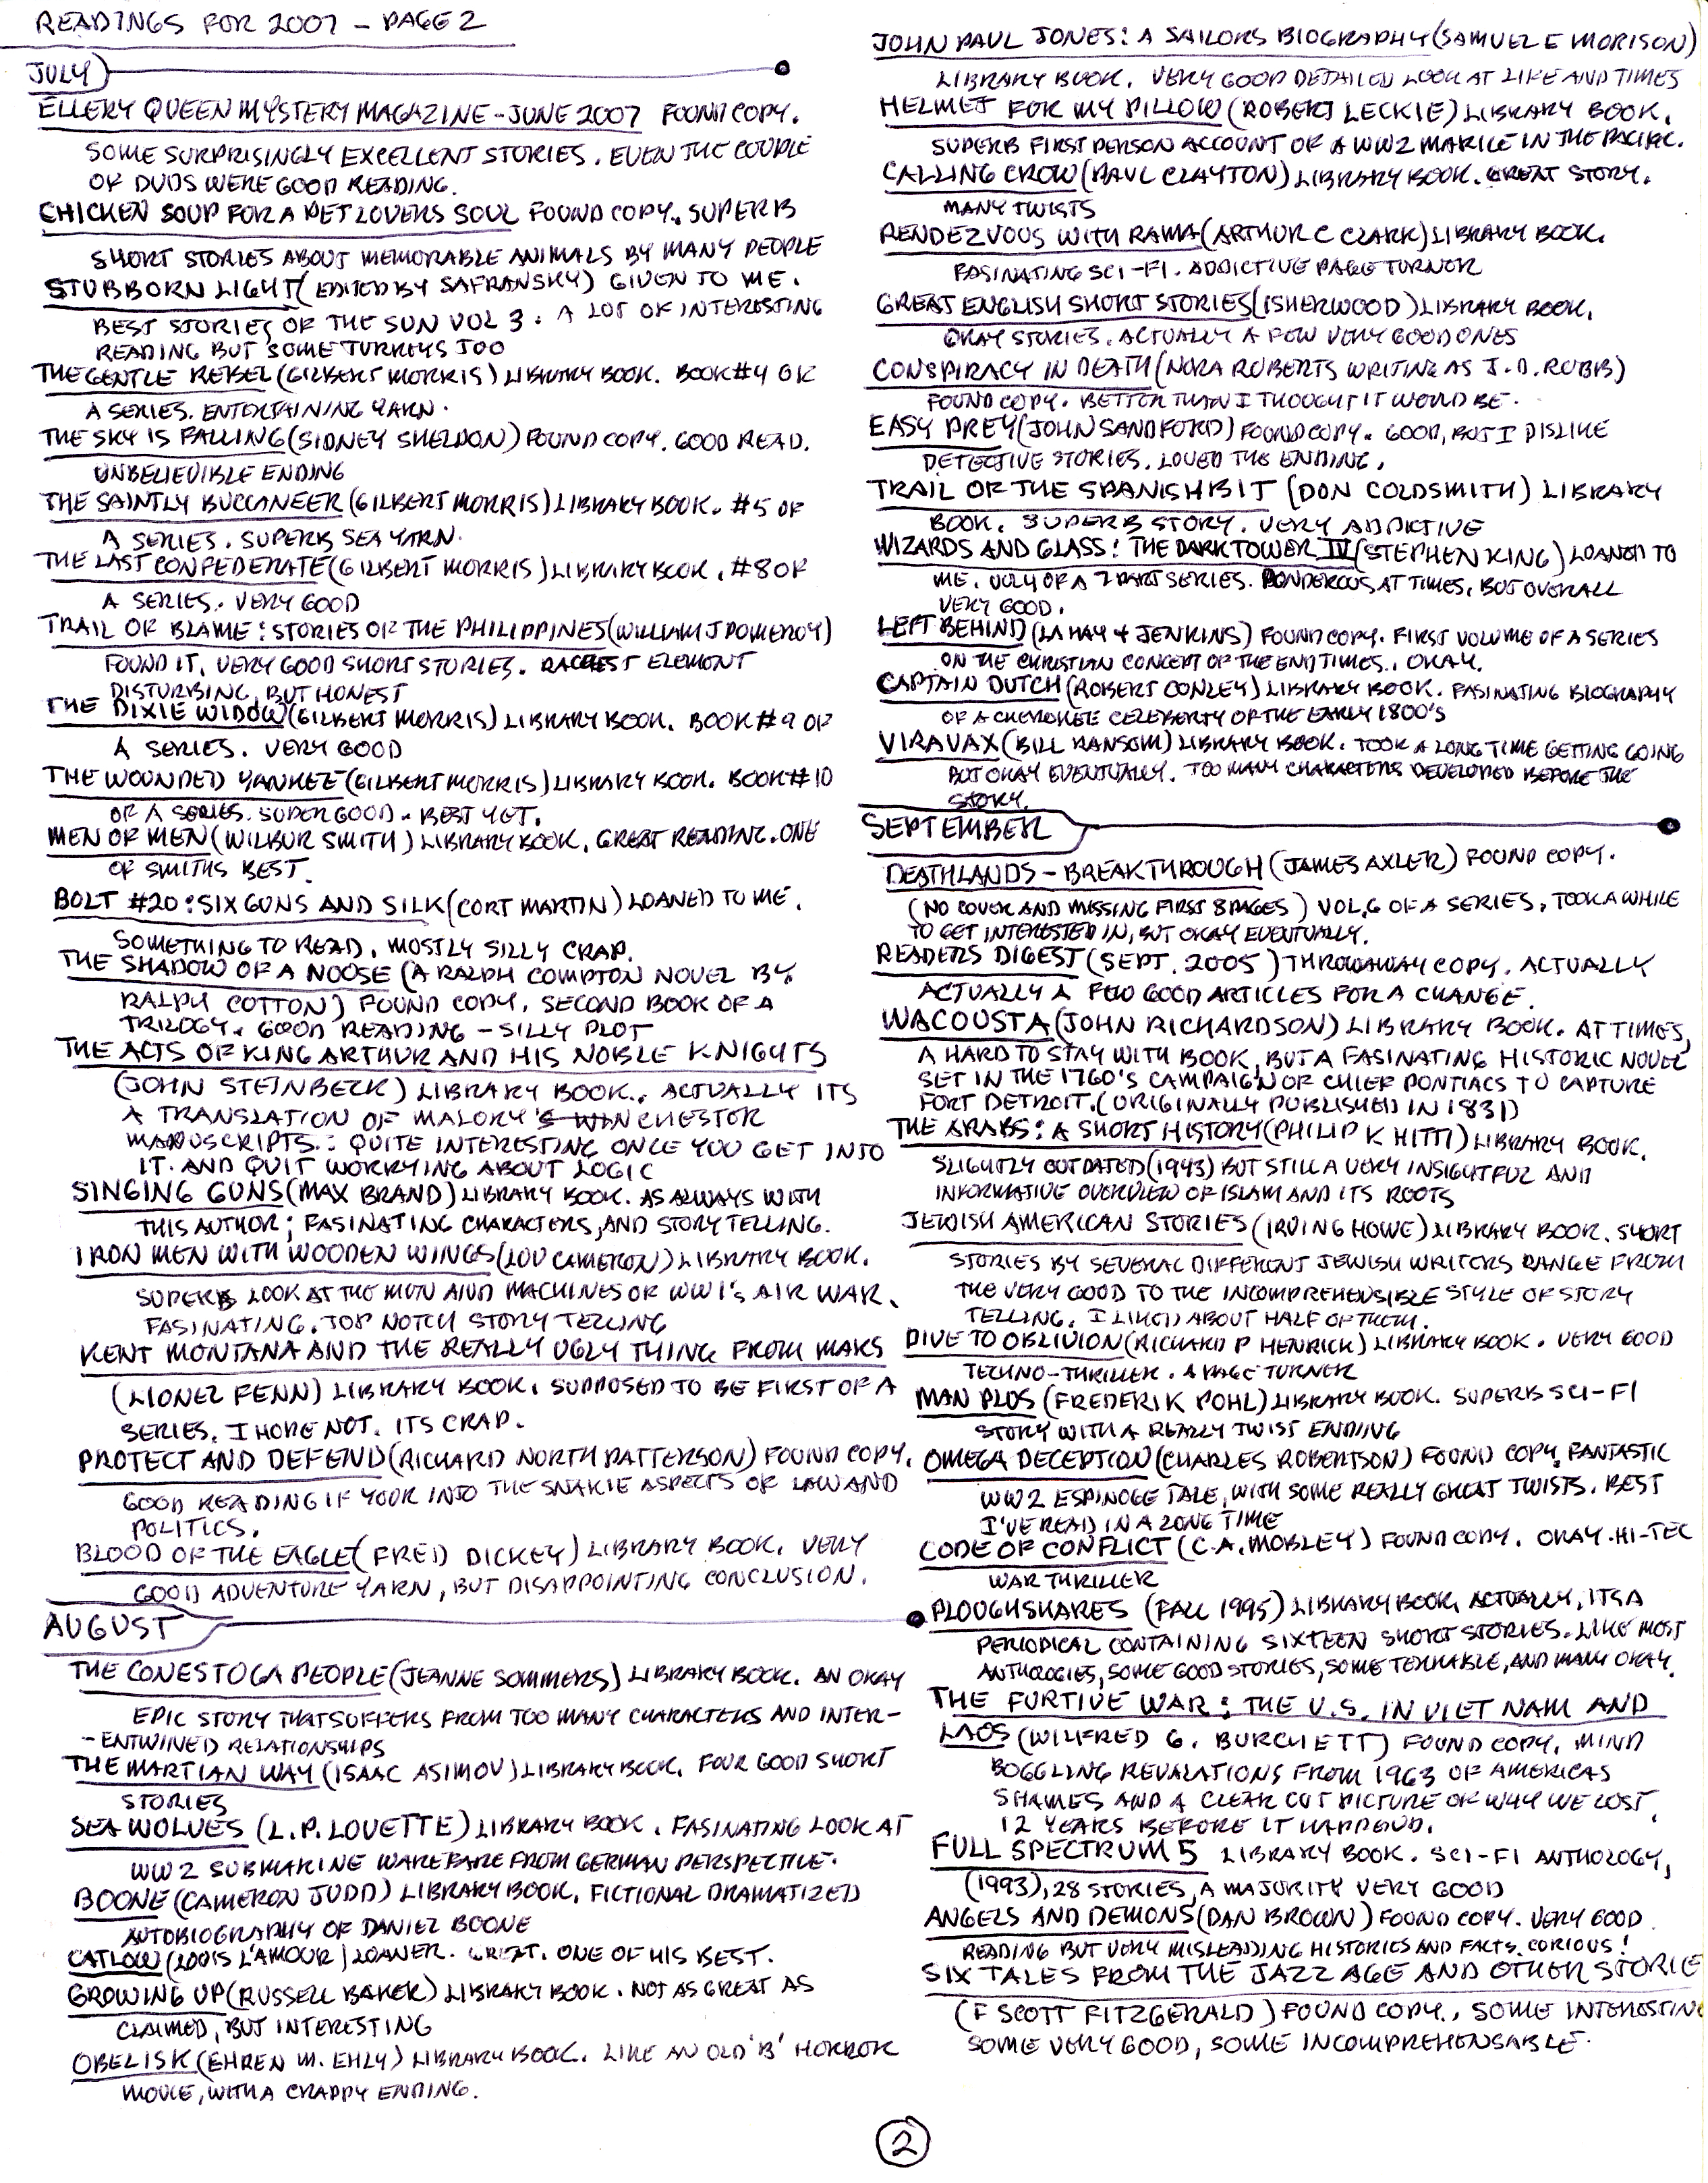 READINGS FOR 2007 - PAGE 2
JULY
ELLERY QUEEN MYSTERY MAGAZINE - JUNE 2007 FOUND COPY.
SOME SURPRISINGLY EXCELLENT STORIES. EVEN THE COUPLE
OF DUDS WERE GOOD READING.
CHICKEN SOUP FOR A PET LOVERS SOUL FOUND COPY. SUPERB
SHORT STORIES ABOUT MEMORABLE ANIMALS BY MANY PEOPLE
STUBBORN LIGHT (EDITED BY SAFRANSKY) GIVEN TO ME.
BEST STORIES OF THE SUN VOL 3. A LOT OF INTERESTING
READING BUT SOME TURKEYS TOO
THE GENTLE REBEL (GILBERT MORRIS) LIBRARY BOOK. BOOK #4 OF
A SERIES. ENTERTAINING YARN.
THE SKY IS FALLING (SIDNEY SHELDON) FOUND COPY. GOOD READ.
UNBELIEVIBLE ENDING
THE SAINTLY BUCCANEER (GILBERT MORRIS) LIBRARY BOOK. #5 OF
A SERIES. SUPERB SEA YARN.
THE LAST CONFEDERATE (GILBERT MORRIS) LIBRARY BOOK. #8 OF
A SERIES. VERY GOOD
TRAIL OF BLAME: STORIES OF THE PHILIPPINES (WILLIAM J POMEROY)
FOUND IT. VERY GOOD SHORT STORIES. RACIST ELEMENT
DISTURBING, BUT HONEST
THE DIXIE WIDOW (GILBERT MORRIS) LIBRARY BOOK. BOOK #9 OF
A SERIES. VERY GOOD
THE WOUNDED YANKEE (GILBERT MORRIS) LIBRARY BOOK. BOOK #10
OF A SERIES. SUPER GOOD - BEST YET.
MEN OF MEN (WILBUR SMITH) LIBRARY BOOK. GREAT READING. ONE
OF SMITHS BEST.
BOLT #20: SIX GUNS AND SILK (CORT MARTIN) LOANED TO ME.
SOMETHING TO READ. MOSTLY SILLY CRAP.
THE SHADOW OF A NOOSE (A RALPH COMPTON NOVEL BY
RALPH COTTON) FOUND COPY. SECOND BOOK OF A
TRILOGY. GOOD READING - SILLY PLOT
THE ACTS OF KING ARTHUR AND HIS NOBLE KNIGHTS
(JOHN STEINBECK) LIBRARY BOOK. ACTUALLY ITS
A TRANSLATION OF MALORY'S WINCHESTER
MANUSCRIPTS. QUITE INTERESTING ONCE YOU GET INTO
IT. AND QUIT WORRYING ABOUT LOGIC
SINGING GUNS (MAX BRAND) LIBRARY BOOK. AS ALWAYS WITH
THIS AUTHOR; FASINATING CHARACTERS, AND STORY TELLING.
IRON MEN WITH WOODEN WINGS (LOU CAMERON) LIBRARY BOOK.
SUPERB LOOK AT THE MEN AND MACHINES OF WW1'S AIR WAR.
FASINATING. TOP NOTCH STORY TELLING
KENT MONTANA AND THE REALLY UGLY THING FROM MARS
(LIONEL FENN) LIBRARY BOOK. SUPPOSED TO BE FIRST OF A
SERIES. I HOPE NOT. ITS CRAP.
PROTECT AND DEFEND (RICHARD NORTH PATTERSON) FOUND COPY.
GOOD READING IF YOUR INTO THE SNAKIE ASPECTS OF LAW AND
POLITICS.
BLOOD OF THE EAGLE (FRED DICKEY) LIBRARY BOOK. VERY
GOOD ADVENTURE YARN, BUT DISAPPOINTING CONCLUSION.
AUGUST
THE CONESTOGA PEOPLE (JEANNE SOMMERS) LIBRARY BOOK. AN OKAY
EPIC STORY THAT SUFFERS FROM TOO MANY CHARACTERS AND INTER-
-ENTWINED RELATIONSHIPS
THE MARTIAN WAY (ISAAC ASIMOV) LIBRARY BOOK. FOUR GOOD SHORT
STORIES
SEA WOLVES (L.P. LOVETTE) LIBRARY BOOK. FASINATING LOOK AT
WW2 SUBMARINE WAREFARE FROM GERMAN PERSPECTIVE.
BOONE (CAMERON JUDD) LIBRARY BOOK. FICTIONAL DRAMATIZED
AUTOBIOGRAPHY OF DANIEL BOONE
CATLOW (LOUIS L'AMOUR) LOANER. GREAT. ONE OF HIS BEST.
GROWING UP (RUSSELL BAKER) LIBRARY BOOK. NOT AS GREAT AS
CLAIMED, BUT INTERESTING
OBELISK (EHREN M. EHLY) LIBRARY BOOK. LIKE AN OLD 'B' HORROR
MOVIE, WITH A CRAPPY ENDING.
JOHN PAUL JONES: A SAILORS BIOGRAPHY (SAMUEL E MORISON)
LIBRARY BOOK. VERY GOOD DETAILED LOOK AT LIFE AND TIMES
HELMET FOR MY PILLOW (ROBERT LECKIE) LIBRARY BOOK.
SUPERB FIRST PERSON ACCOUNT OF A WW2 MARINE IN THE PACIFIC.
CALLING CROW (PAUL CLAYTON) LIBRARY BOOK. GREAT STORY.
MANY TWISTS
RENDEZVOUS WITH RAMA (ARTHUR C CLARK) LIBRARY BOOK.
FASINATING SCI-FI. ADDICTIVE PAGE TURNER
GREAT ENGLISH SHORT STORIES (ISHERWOOD) LIBRARY BOOK.
OKAY STORIES. ACTUALLY A FEW VERY GOOD ONES
CONSPIRACY IN DEATH (NORA ROBERTS WRITING AS J.D. ROBB)
FOUND COPY. BETTER THAN I THOUGHT IT WOULD BE.
EASY PREY (JOHN SANDFORD) FOUND COPY. GOOD, BUT I DISLIKE
DETECTIVE STORIES. LOVED THE ENDING.
TRAIL OF THE SPANISH BIT (DON COLDSMITH) LIBRARY
BOOK. SUPERB STORY. VERY ADDICTIVE
WIZARDS AND GLASS: THE DARK TOWER IV (STEPHEN KING) LOANED TO
ME. VOL 4 OF A 7 PART SERIES. PONDEROUS AT TIMES, BUT OVERALL
VERY GOOD.
LEFT BEHIND (LA HAY + JENKINS) FOUND COPY. FIRST VOLUME OF A SERIES
ON THE CHRISTIAN CONCEPT OF THE END TIMES. OKAY.
CAPTAIN DUTCH (ROBERT CONLEY) LIBRARY BOOK. FASINATING BIOGRAPHY
OF A CHEROKEE CELEBERTY OF THE EARLY 1800'S
VIRAVAX (BILL RANSOM) LIBRARY BOOK. TOOK A LONG TIME GETTING GOING
BUT OKAY EVENTUALLY. TOO MANY CHARACTERS DEVELOPED BEFORE THE
STORY.
SEPTEMBER
DEATHLANDS - BREAKTHROUGH (JAMES AXLER) FOUND COPY.
(NO COVER AND MISSING FIRST 8 PAGES) VOL, 6 OF A SERIES. TOOK A WHILE
TO GET INTERESTED IN, BUT OKAY EVENTUALLY.
READERS DIGEST (SEPT. 2005) THROWAWAY COPY. ACTUALLY
ACTUALLY A FEW GOOD ARTICLES FOR A CHANGE.
WACOUSTA (JOHN RICHARDSON) LIBRARY BOOK. AT TIMES,
A HARD TO STAY WITH BOOK, BUT A FASINATING HISTORIC NOVEL
SET IN THE 1760'S CAMPAIGN OF CHIEF PONTIACS TO CAPTURE
FORT DETROIT. (ORIGINALLY PUBLISHED IN 1831)
THE ARABS: A SHORT HISTORY (PHILIP K HITTI) LIBRARY BOOK.
SLIGHTLY OUTDATED (1943) BUT STILL A VERY INSIGHTFUL AND
INFORMATIVE OVERVIEW OF ISLAM AND ITS ROOTS
JEWISH AMERICAN STORIES (IRVING HOWE) LIBRARY BOOK. SHORT
STORIES BY SEVERAL DIFFERENT JEWISH WRITERS RANGE FROM
THE VERY GOOD TO THE INCOMPREHENSIBLE STYLE OF STORY
TELLING. I LIKED ABOUT HALF OF THEM.
DIVE TO OBLIVION (RICHARD P HENRICK) LIBRARY BOOK. VERY GOOD
TECHNO-THRILLER. A PAGE TURNER
MAN PLUS (FREDERIK POHL) LIBRARY BOOK. SUPERB SCI-FI
STORY WITH A REALLY TWIST ENDING
OMEGA DECEPTION (CHARLES ROBERTSON) FOUND COPY. FANTASTIC
WW2 ESPINOGE TALE, WITH SOME REALLY GREAT TWISTS. BEST
I'VE READ IN A LONG TIME
CODE OF CONFLICT (C.A. MOBLEY) FOUND COPY. OKAY HI-TEC
WAR THRILLER
PLOUGHSHARES (FALL 1995) LIBRARY BOOK. ACTUALLY, ITS A
PERIODICAL CONTAINING SIXTEEN SHORT STORIES. LIKE MOST
ANTHOLOGIES, SOME GOOD STORIES, SOME TERRABLE, AND MANY OKAY.
THE FURTIVE WAR: THE U.S. IN VIET NAM AND
LAOS (WILFRED G. BURCHETT) FOUND COPY. MIND
BOGGLING REVALATIONS FROM 1963 OF AMERICAS
SHAMES AND A CLEAR CUT PICTURE OF WHY WE LOST,
12 YEARS BEFORE IT HAPPEND.
FULL SPECTRUM 5 LIBRARY BOOK. SCI-FI ANTHOLOGY,
(1993), 28 STORIES, A MAJORITY VERY GOOD
ANGELS AND DEMONS (DAN BROWN) FOUND COPY. VERY GOOD
READING BUT VERY MISLEADING HISTORIES AND FACTS. CORIOUS!
SIX TALES FROM THE JAZZ AGE AND OTHER STORIE
(F SCOTT FITZGERALD) FOUND COPY. SOME INTERESTING
SOME VERY GOOD, SOME INCOMPREHENSABLE.
2